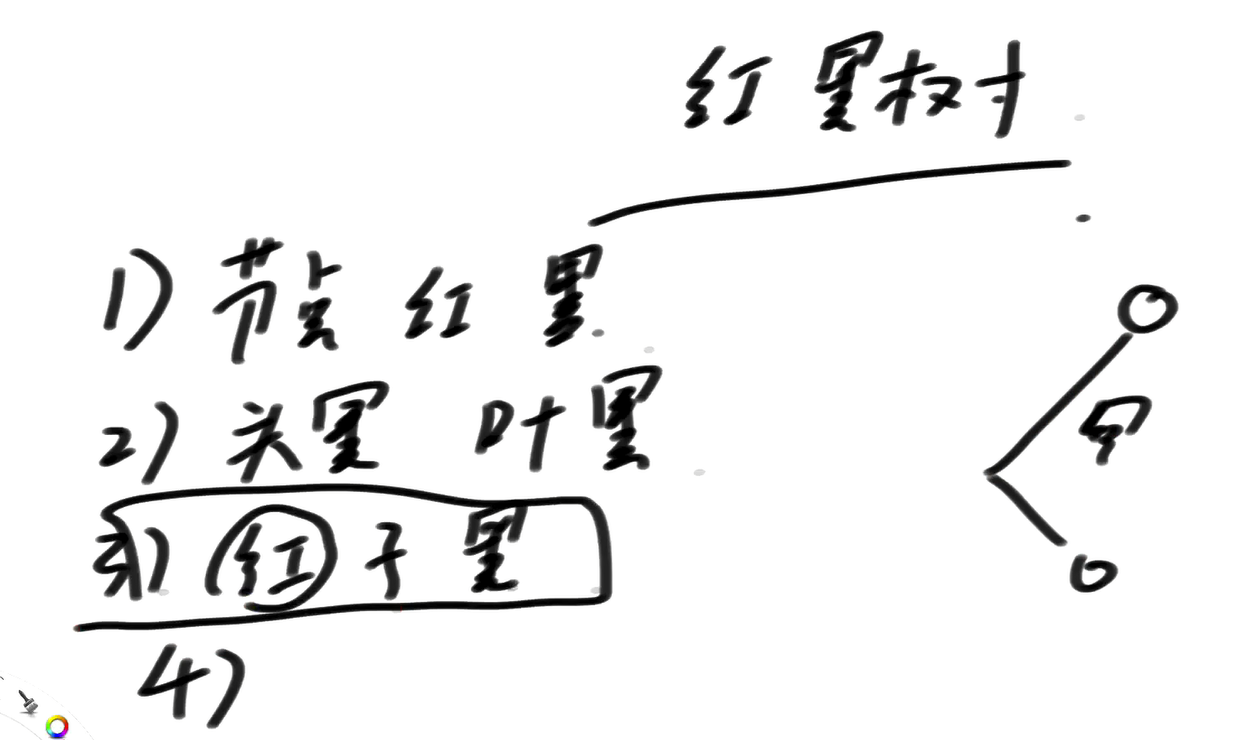 红黑树
1) 节点 红 黑
2) 关黑 叶黑
3) 红 子 黑
4)